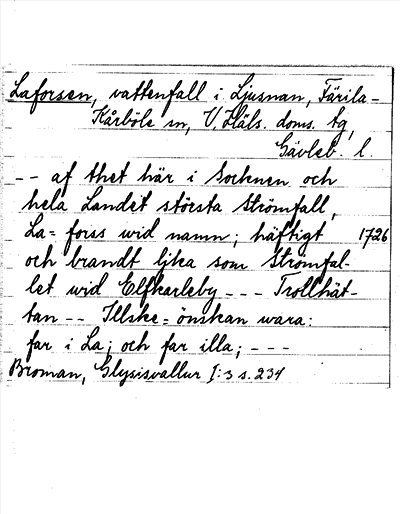 Laforsen, vattenfall i Ljusnan, Färila-
Kårböle sn, V. Häls. doms. tg,
Gävleb. l.
-- af thet här i Socknen och
hela Landet största Strömfall,
La-forss wid namn; häftigt 1726
och brandt lika som Strömfal-
let wid Elfkarleby --- Trollhät-
tan -- Illske-önskan wara:
far i La; och far illa; ---
Broman, Glysisvallur I:3 s. 234